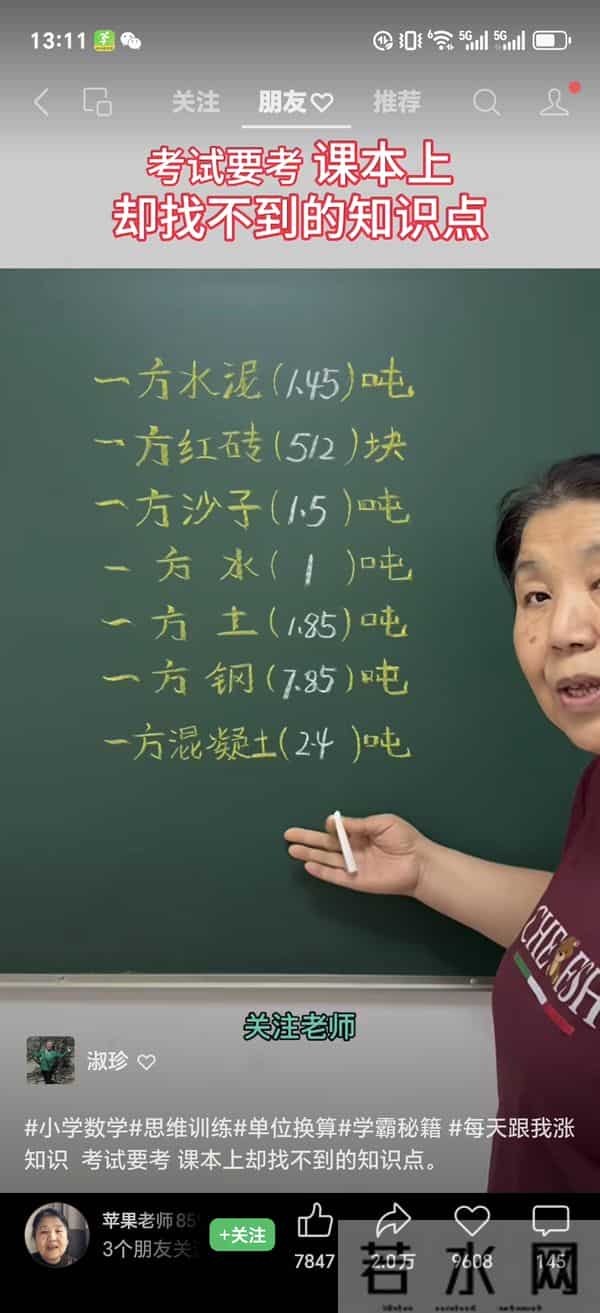 13:11
6 5G 5G
关注 朋友 推荐
考试要考 课本上
却找不到的知识点
一方水泥(1.45)吨
一方红砖(512)块
一方沙子(1.5)吨
一方水(1)吨
一方土(1.85)吨
一方钢(7.85)吨
一方混凝土(2.4)吨
关注老师
淑珍
#小学数学#思维训练#单位换算#学霸秘籍 #每天跟我涨
知识 考试要考 课本上却找不到的知识点。
苹果老师
3个朋友关
+关注
7847 2.0万 9608 145
若水网